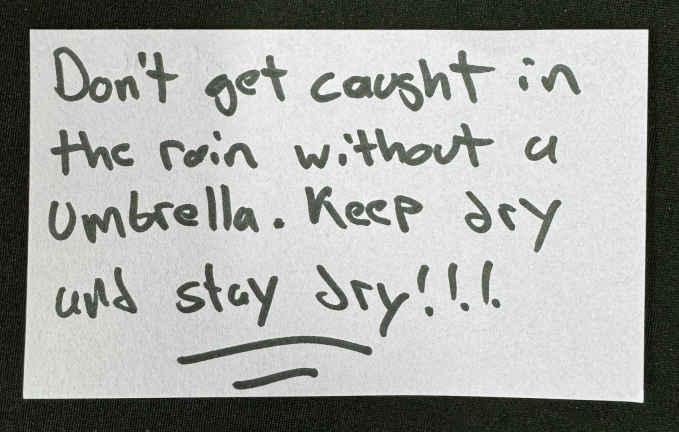 Don't get caught in
the rain without a
umbrella. Keep dry
and stay dry!!!